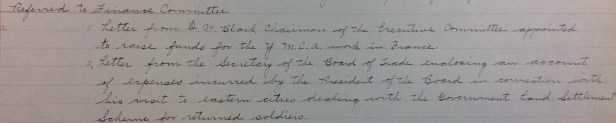 Referred to Finance Committee
1. Letter from D. W. Black, Chairman of the Executive Committee appointed
to raise funds for the Y.M.C.A. work in France.
2. Letter from the Secretary of the Board of Trade enclosing an account
of expenses incurred by the President of the Board in connection with
his visit to eastern cities dealing with the Government Land Settlement
Scheme for returned soldiers.